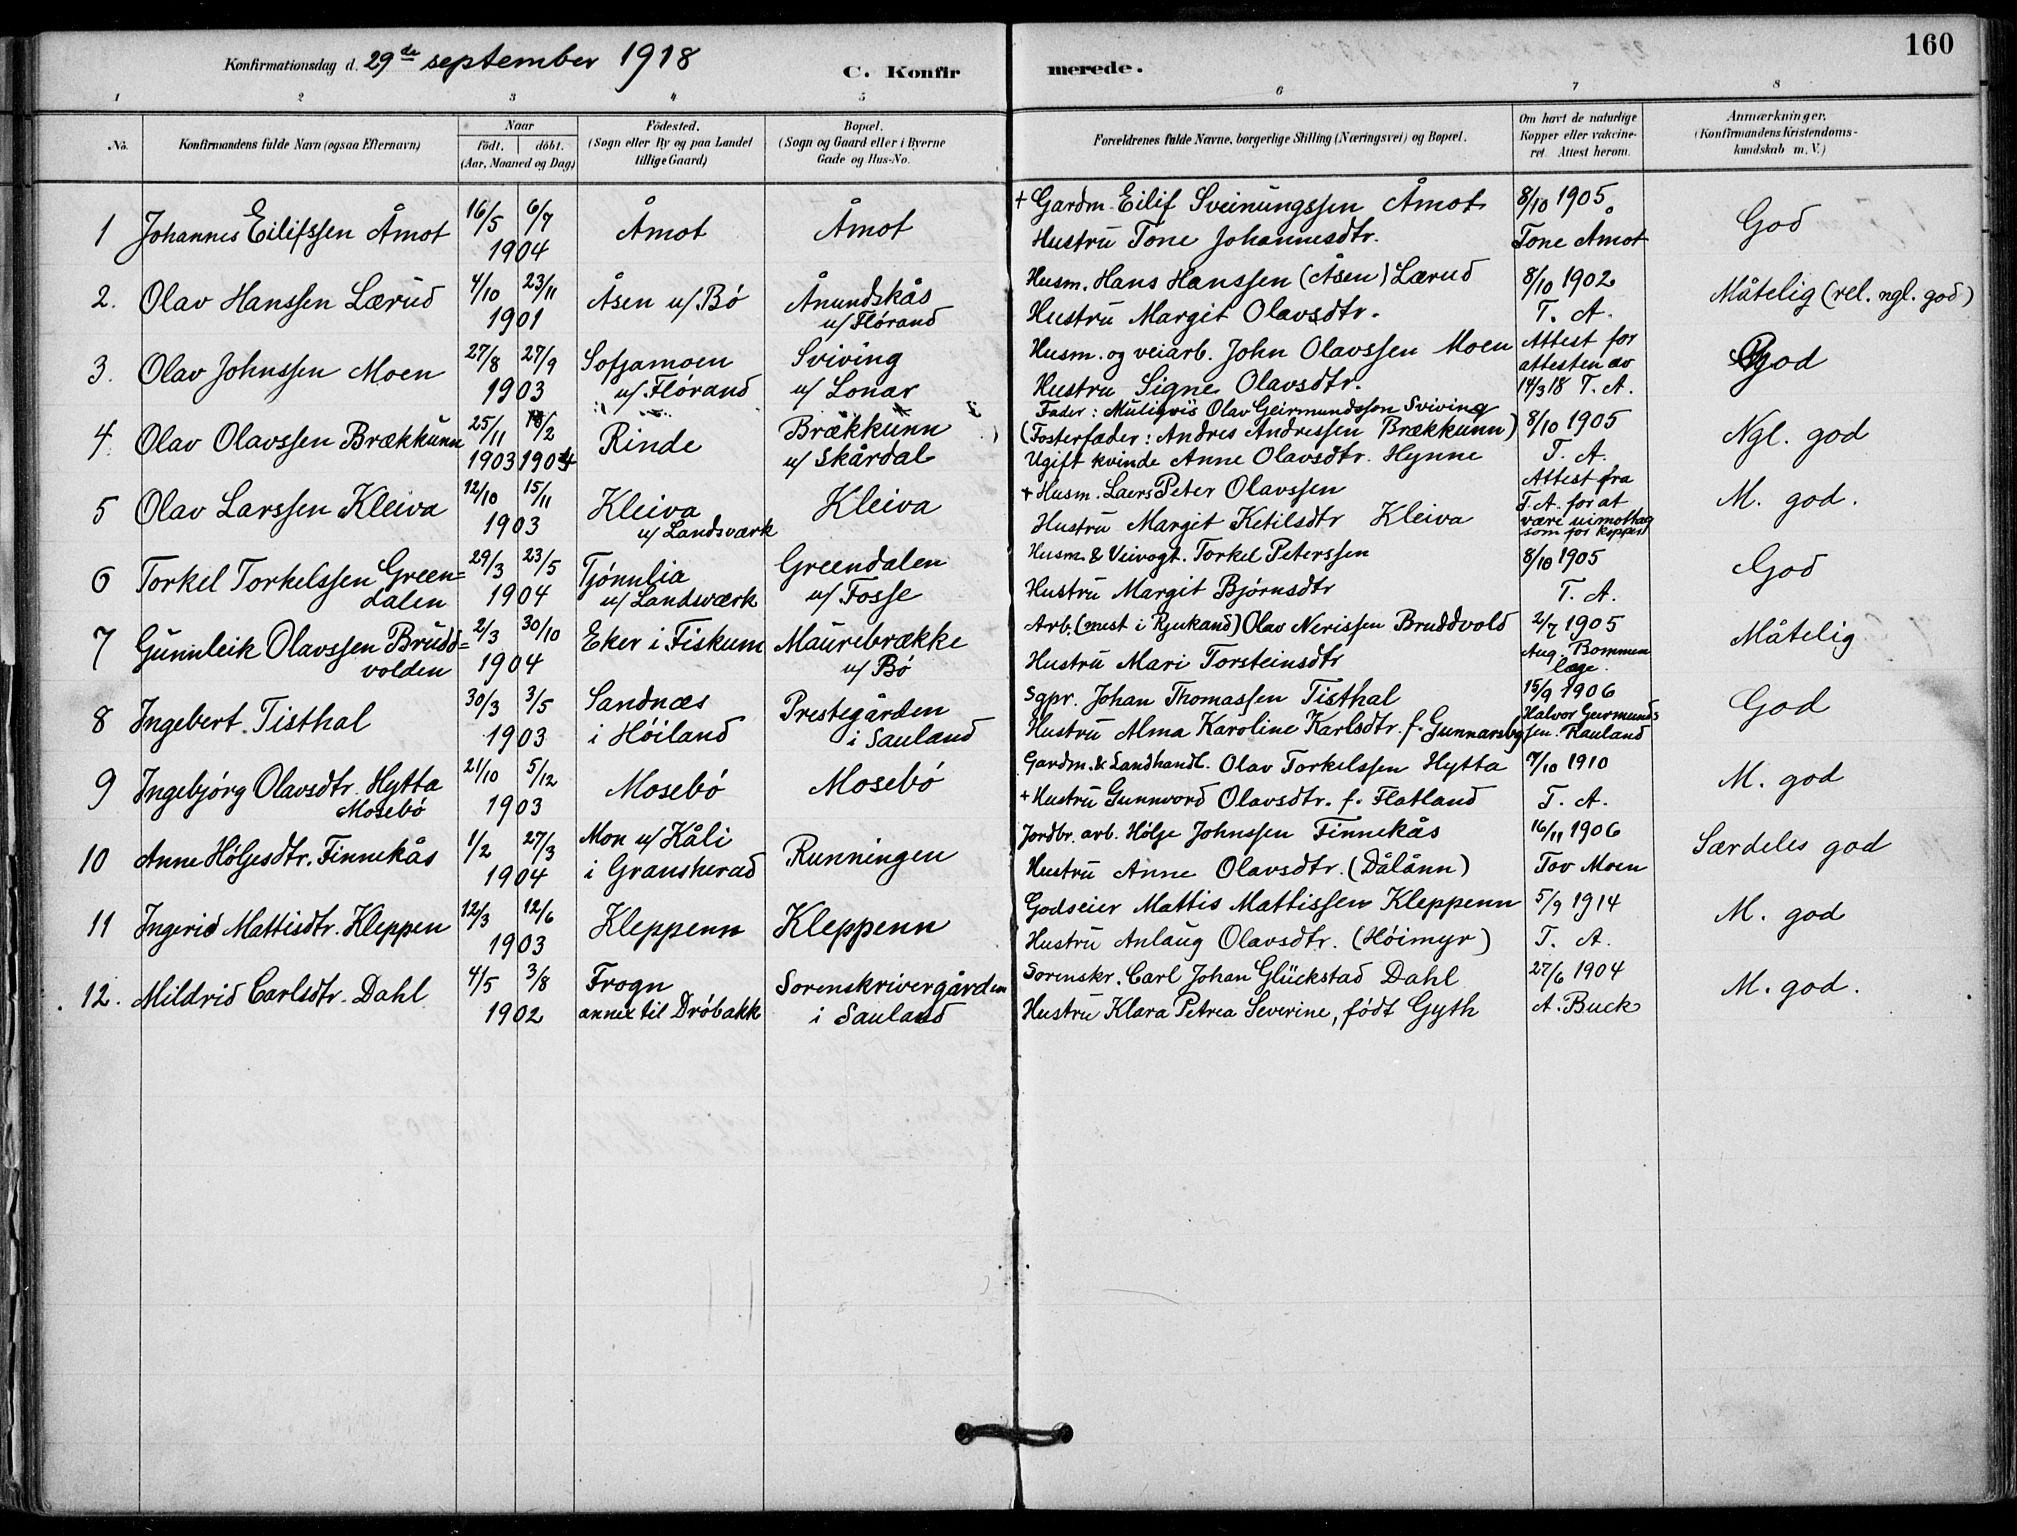 160
Konfirmationsdag d. 29de september 1918
C. Konfirmerede.
1 2 3 4 5 6 7 8
No. Konfirmandens fulde Navn (ogsaa Efternavn) Naar födt. döbt. (Aar, Maaned og Dag) Födested. (Sogn eller By og paa Landet tillige Gaard) Bopæl. (Sogn og Gaard eller i Byerne Gade og Hus-No. Forældrenes fulde Navne, borgerlige Stilling (Næringsvei) og Bopæl. Om havt de naturlige Kopper eller vakcineret. Attest herom. Anmærkninger. (Konfirmandens Kristendomskundskab m. V.)
1 Johannes Eilifssen Åmot 16/5 6/7 1904 Åmot Åmot + Gardm. Eilif Sveinungssen Åmot 8/10 1905 God
Hustru Tone Johannesdtr. Tone Åmot
2. Olav Hanssen Lærud 4/10 23/11 1901 Åsen u/ Bö Ånundskås u/ Flörand Husm. Hans Hanssen (Åsen) Lærud 8/10 1902 Måtelig (rel. ngl. god)
Hustru Margit Olavsdtr. T. A.
3. Olav Johnssen Moen 27/8 27/9 1903 Sofjamoen u/ Flörand Sviving u/ Lonar Husm. og veiarb. John Olavssen Moen Attest for attesten av God
Hustru Signe Olavsdtr. 14/3 18 T. A.
4 Olav Olavssen Brækkunn 25/11 1903 18/2 1904 Rinde Brækkunn u/ Skårdal Fader: Muligvis Olav Geirmundssen Sviving
(Fosterfader: Andres Andressen Brækkunn) 8/10 1905 Ngl. god
Ugift kvinde Anne Olavsdtr. Hynne T. A.
5 Olav Larssen Kleiva 12/10 15/11 1903 Kleiva u/ Landsværk Kleiva + Husm. Laers Peter Olavssen Attest fra T. A. for at M. god.
Hustru Margit Ketilsdtr Kleiva være uimottag som for kopper
6 Torkel Torkelssen Green= dalen 29/3 23/5 1904 Tjönnlia u/ Landsværk Greendalen u/ Fosse Husm. & Veivogt. Torkel Peterssen 8/10 1905 God
Hustru Margit Bjørnsdtr T. A.
7 Gunnleik Olavssen Brudd= volden 2/3 30/10 1904 Eker i Fiskum Maurebrække u/ Bö Arb. (mest i Rjukand) Olav Nerissen Bruddvold 2/7 1905 Måtelig
Hustru Mari Torsteinsdtr Aug. Bommen læge.
8 Ingebert Tisthal 30/3 3/5 1903 Sandnæs i Höiland Prestegården i Sauland Sgpr. Johan Thomassen Tisthal 15/9 1906 God
Hustru Alma Karoline Karlsdtr. f. Gunnarsby Halvor Geirmundssen. Rauland
9 Ingebjörg Olavsdtr. Hytta Mosebö 21/10 5/12 1903 Mosebö Mosebö Gardm. & Landhandl. Olav Torkelssen Hytta 7/10 1910 M. god
+ Hustru Gunnvord Olavsdtr. f. Flatland T. A.
10 Anne Höljesdtr. Finnekås 1/2 27/3 1904 Mon u/ Kåli i Gransherad Runningen Jordbr. arb. Hölje Johnssen Finnekås 16/11 1906 Særdeles god
Hustru Anne Olavsdtr. (Dålånn) Tov Moen
11 Ingerid Mattisdtr. Kleppen 12/3 12/6 1903 Kleppenn Kleppenn Godseier Mattis Mattissen Kleppenn 5/9 1914 M. god
Hustru Anlaug Olavsdtr. (Höimyr) T. A.
12. Mildrid Carlsdtr. Dahl 4/5 3/8 1902 Frogn annex til Dröbakk Sorenskrivergården i Sauland Sorenskr. Carl Johan Glückstad Dahl 27/6 1904 M. god.
Hustru Klara Petrea Severine, født Gyth A. Buck